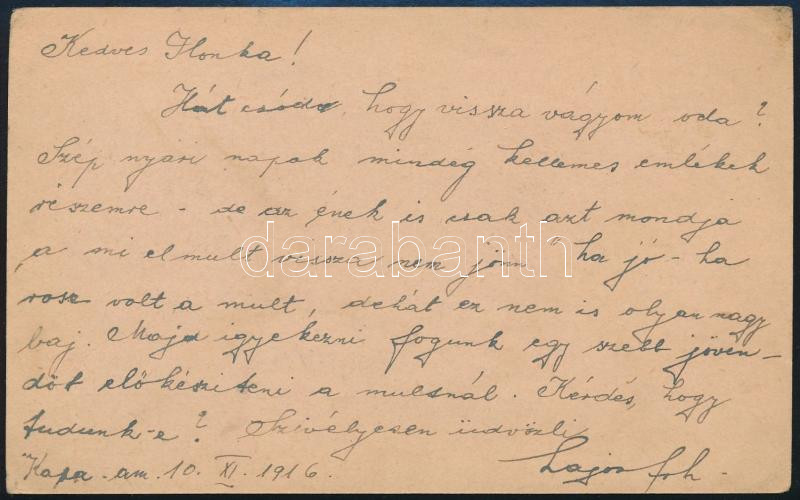 Kedves Ilonka!
Hát csóda, hogy vissza vágyom oda?
Szép nyári napok mindég kellemes emlékek
részemre - de az ének is csak azt mondja
a mi elmult vissza nem jönn" ha jó - ha
rosz volt a mult, dehát ez nem is olyan nagy
baj. Majd igyekezni fogunk egy szebb jöven-
dőt előkésziteni a multnál. Kérdés, hogy
tudunk-e? Szivélyesen üdvözli
am. 10. XI. 1916. Lajos
darabanth